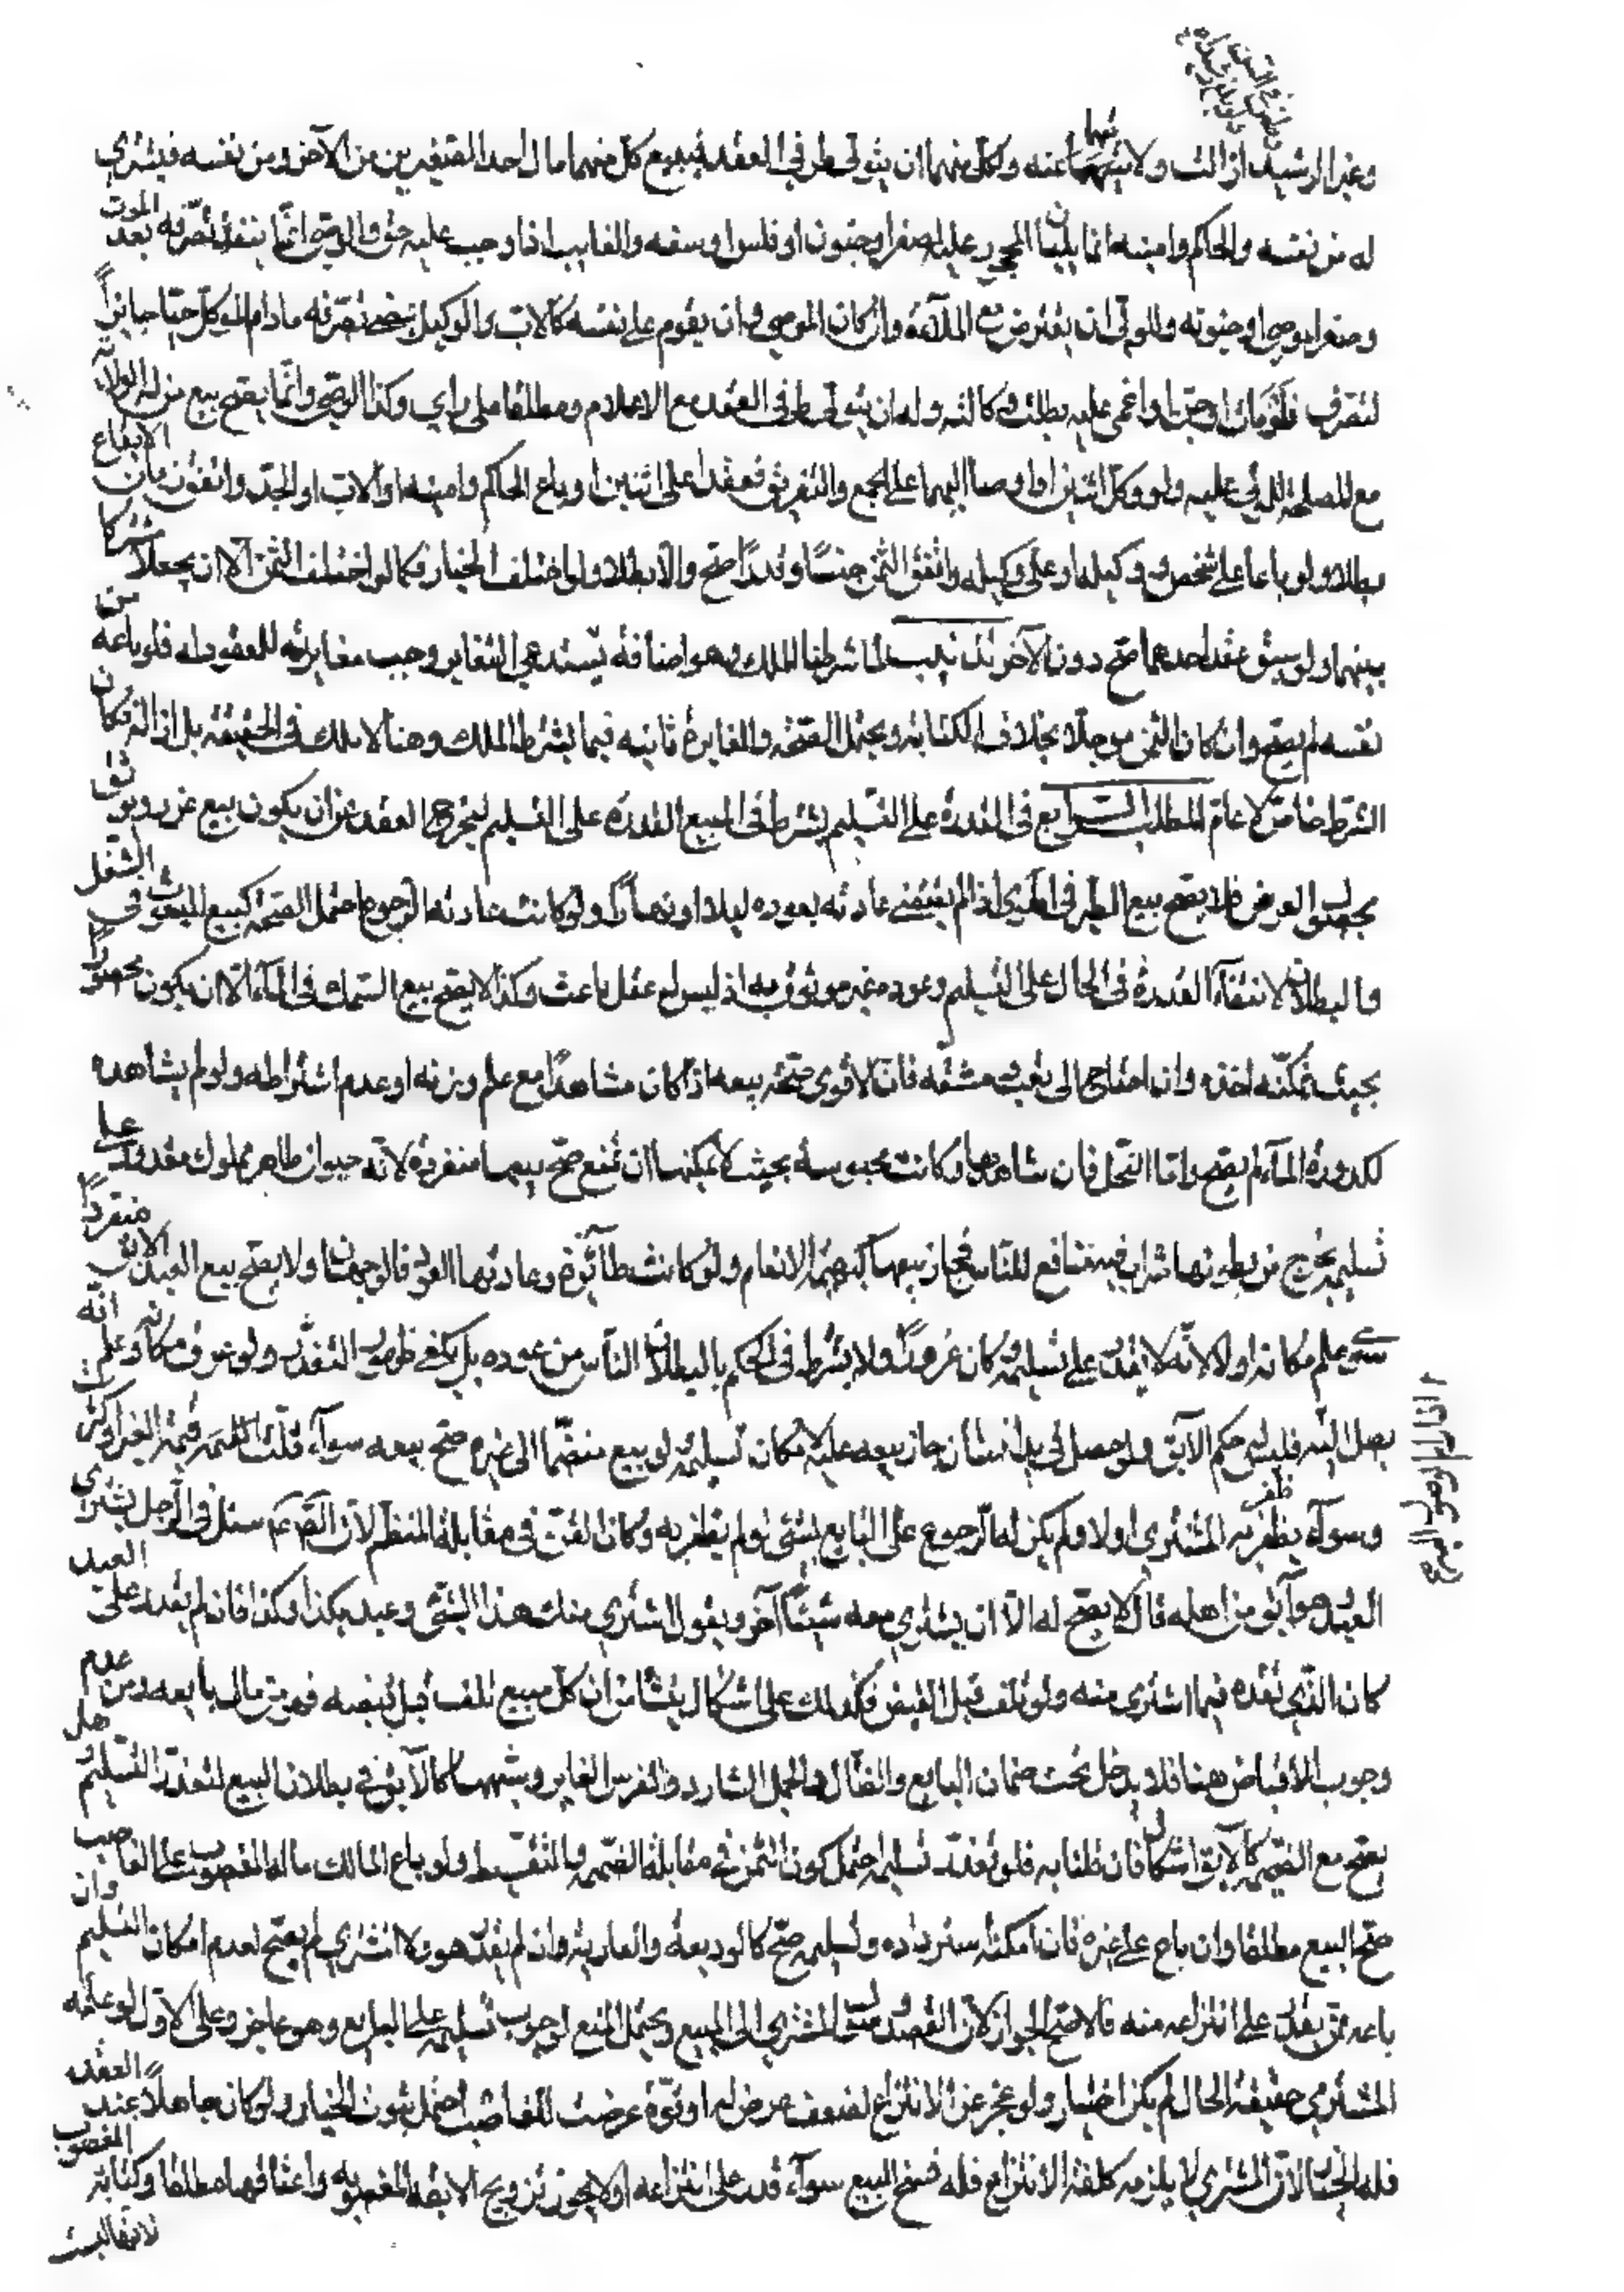 وغير الرشيد ازالت ولايتهما عنه ولكل منهما ان يتولى طرفي العقد فيبيع كل منهما مال احد الصغيرين من الآخر ومن نفسه فيشتري
له من نفسه والحاكم وامينه انما يليان المحجور عليه لصغر او جنون او فلس او سفه والغايب اذا وجب عليه حق والوصي انما ينفذ تصرفه بعد الموت
وصغر الموصى او جنونه وللولي ان يقترض مع الملاءة وان كان الموصي وان يقوم على نفسه كالاب والوكيل يمضي تصرفه ما دام الموكل حيا جايز
لتصرف فلو مات او جن او اغمي عليه بطلت وكالته وله ان يتولى طرفي العقد مع الاعلام ومطلقا على رأي وكذا الوصي وانما يصح بيع من له الولاية
مع المصلحة للمولى عليه ولو وكل اثنين او اوصى اليهما على الجمع والتفريق فعقدا على اثنين او باع الحاكم وامينه او الاب او الجد واتفق زمان الايقاع
بطلا ولو باعا على شخص ووكيله او على وكيله واتفق الثمن جنسا وقدرا صح والا بطلا ولو اختلف الخيار فكما لو اختلف الثمن الا ان يجعلا مشتركا
بينهما ولو سبق عقد احدهما صح دون الآخر تذنيب لما شرطنا الملك وهو اضافة يستدعي التغاير وجب مغايرته للعقود له فلو باعه من
نفسه لم يصح وان كان الثمن موجلا بخلاف الكتابة ويحتمل الصحة والمغايرة ثابتة فيما يشترط الملك وهنا لا يملك في الحقيقة بل ازالة فكان
الشرط خاصا لا عاما المطلب الرابع في القدرة على التسليم يشترط في المبيع القدرة على التسليم ليخرج العقد عن ان يكون بيع غرر ويوثق
بحصول العوض فلا يصح بيع الطير في الهوى اذا لم يقتض عادته بعوده ليلا او نهارا ولو كانت عادتها الرجوع احتمل الصحة كبيع المبعوث في الشغل
والبطلان لانتفآء القدرة في الحال على التسليم وعوده غير موثوق به اذ ليس له عقل باعث وكذا لا يصح بيع السمك في المآء الا ان يكون محصورا
بحيث يمكنه اخذه وان احتاج الى تعب ومشقه فان الاقوى صحة بيعه اذا كان مشاهدا مع علم وزنه او عدم اشتراطه ولو لم يشاهده
لكدورة المآء لم يصح واما النحل فان شاهدها وكانت محبوسة بحيث لا يمكنها ان تمنع صح بيعها منفردة لانه حيوان طاهر مملوك مقدور على
تسليمه يخرج من بطونها شراب فيه منافع للناس فجاز بيعها كبهيمة الانعام ولو كانت طآئرة وعادتها العود فالوجهان ولا يصح بيع العبد الابق منفردا
سوى علم مكانه او لا لانه لا يقدر على تسليمه فكان غررا ولا يشترط في الحكم بالبطلان اليأس من عوده بل يكفي ظهور التعذر ولو عرف مكانه وعلم انه
يصل اليه فليس له حكم الابق ولو حصل في يد انسان جاز بيعه عليه لامكان تسليمه ولو بيع منضما الى غيره صح بيعه سوآء قلت قيمة الغير او كثرت
وسوآء ظفر به المشتري او لا ولم يكن له الرجوع على البايع بشئ لو لم يظفر به وكان الثمن في مقابلة المنضم لان الصادق ع سئل في الرجل يشتري
العبد وهو آبق من اهله قال لا يصح له الا ان يشتري معه شيئا آخر ويقول اشتري منك هذا الشئ وعبدك بكذا وكذا فان لم يقدر على العبد
كان الذي نقده فيما اشترى منه ولو تلف قبل القبض فكذلك على اشكال ينشأ من ان كل مبيع تلف قبل قبضه فهو من مال بايعه ومن عدم
وجوب الاقباض هنا فلا يدخل تحت ضمان البايع والضال والجمل الشارد والفرس الغاير وشبهها كالآبق في بطلان البيع لتعذر التسليم هل
يصح مع الضميمة كالآبق اشكال فان قلنا به فلو تعذر تسليمه احتمل كون الثمن في مقابلة الضميمة والتقسيط ولو باع المالك ماله المغصوب على الغاصب
صح البيع مطلقا وان باع على غيره فان امكنه استرداده وتسليمه صح كالوديعة والعارية وان لم يقدر هو ولا المشتري لم يصح لعدم امكان التسليم وان
باعه ممن يقدر على انتزاعه منه فالاصح الجواز لان القصد وصول المشتري الى المبيع ويحتمل المنع لوجوب تسليمه على البايع وهو عاجز وعلى الاول لو علم
المشتري حقيقة الحال لم يكن له خيار ولو عجز عن الانتزاع لضعف عرض له او قوة عرضت للغاصب احتمل ثبوت الخيار ولو كان جاهلا عند العقد
فله الخيار لان المشتري لا يلزمه كلفة الانتزاع فله فسخ المبيع سوآء قدر على انتزاعه او لا ويجوز تزويج الابقة المغصوبه واعتاقهما مطلقا وكتابة المغصوب